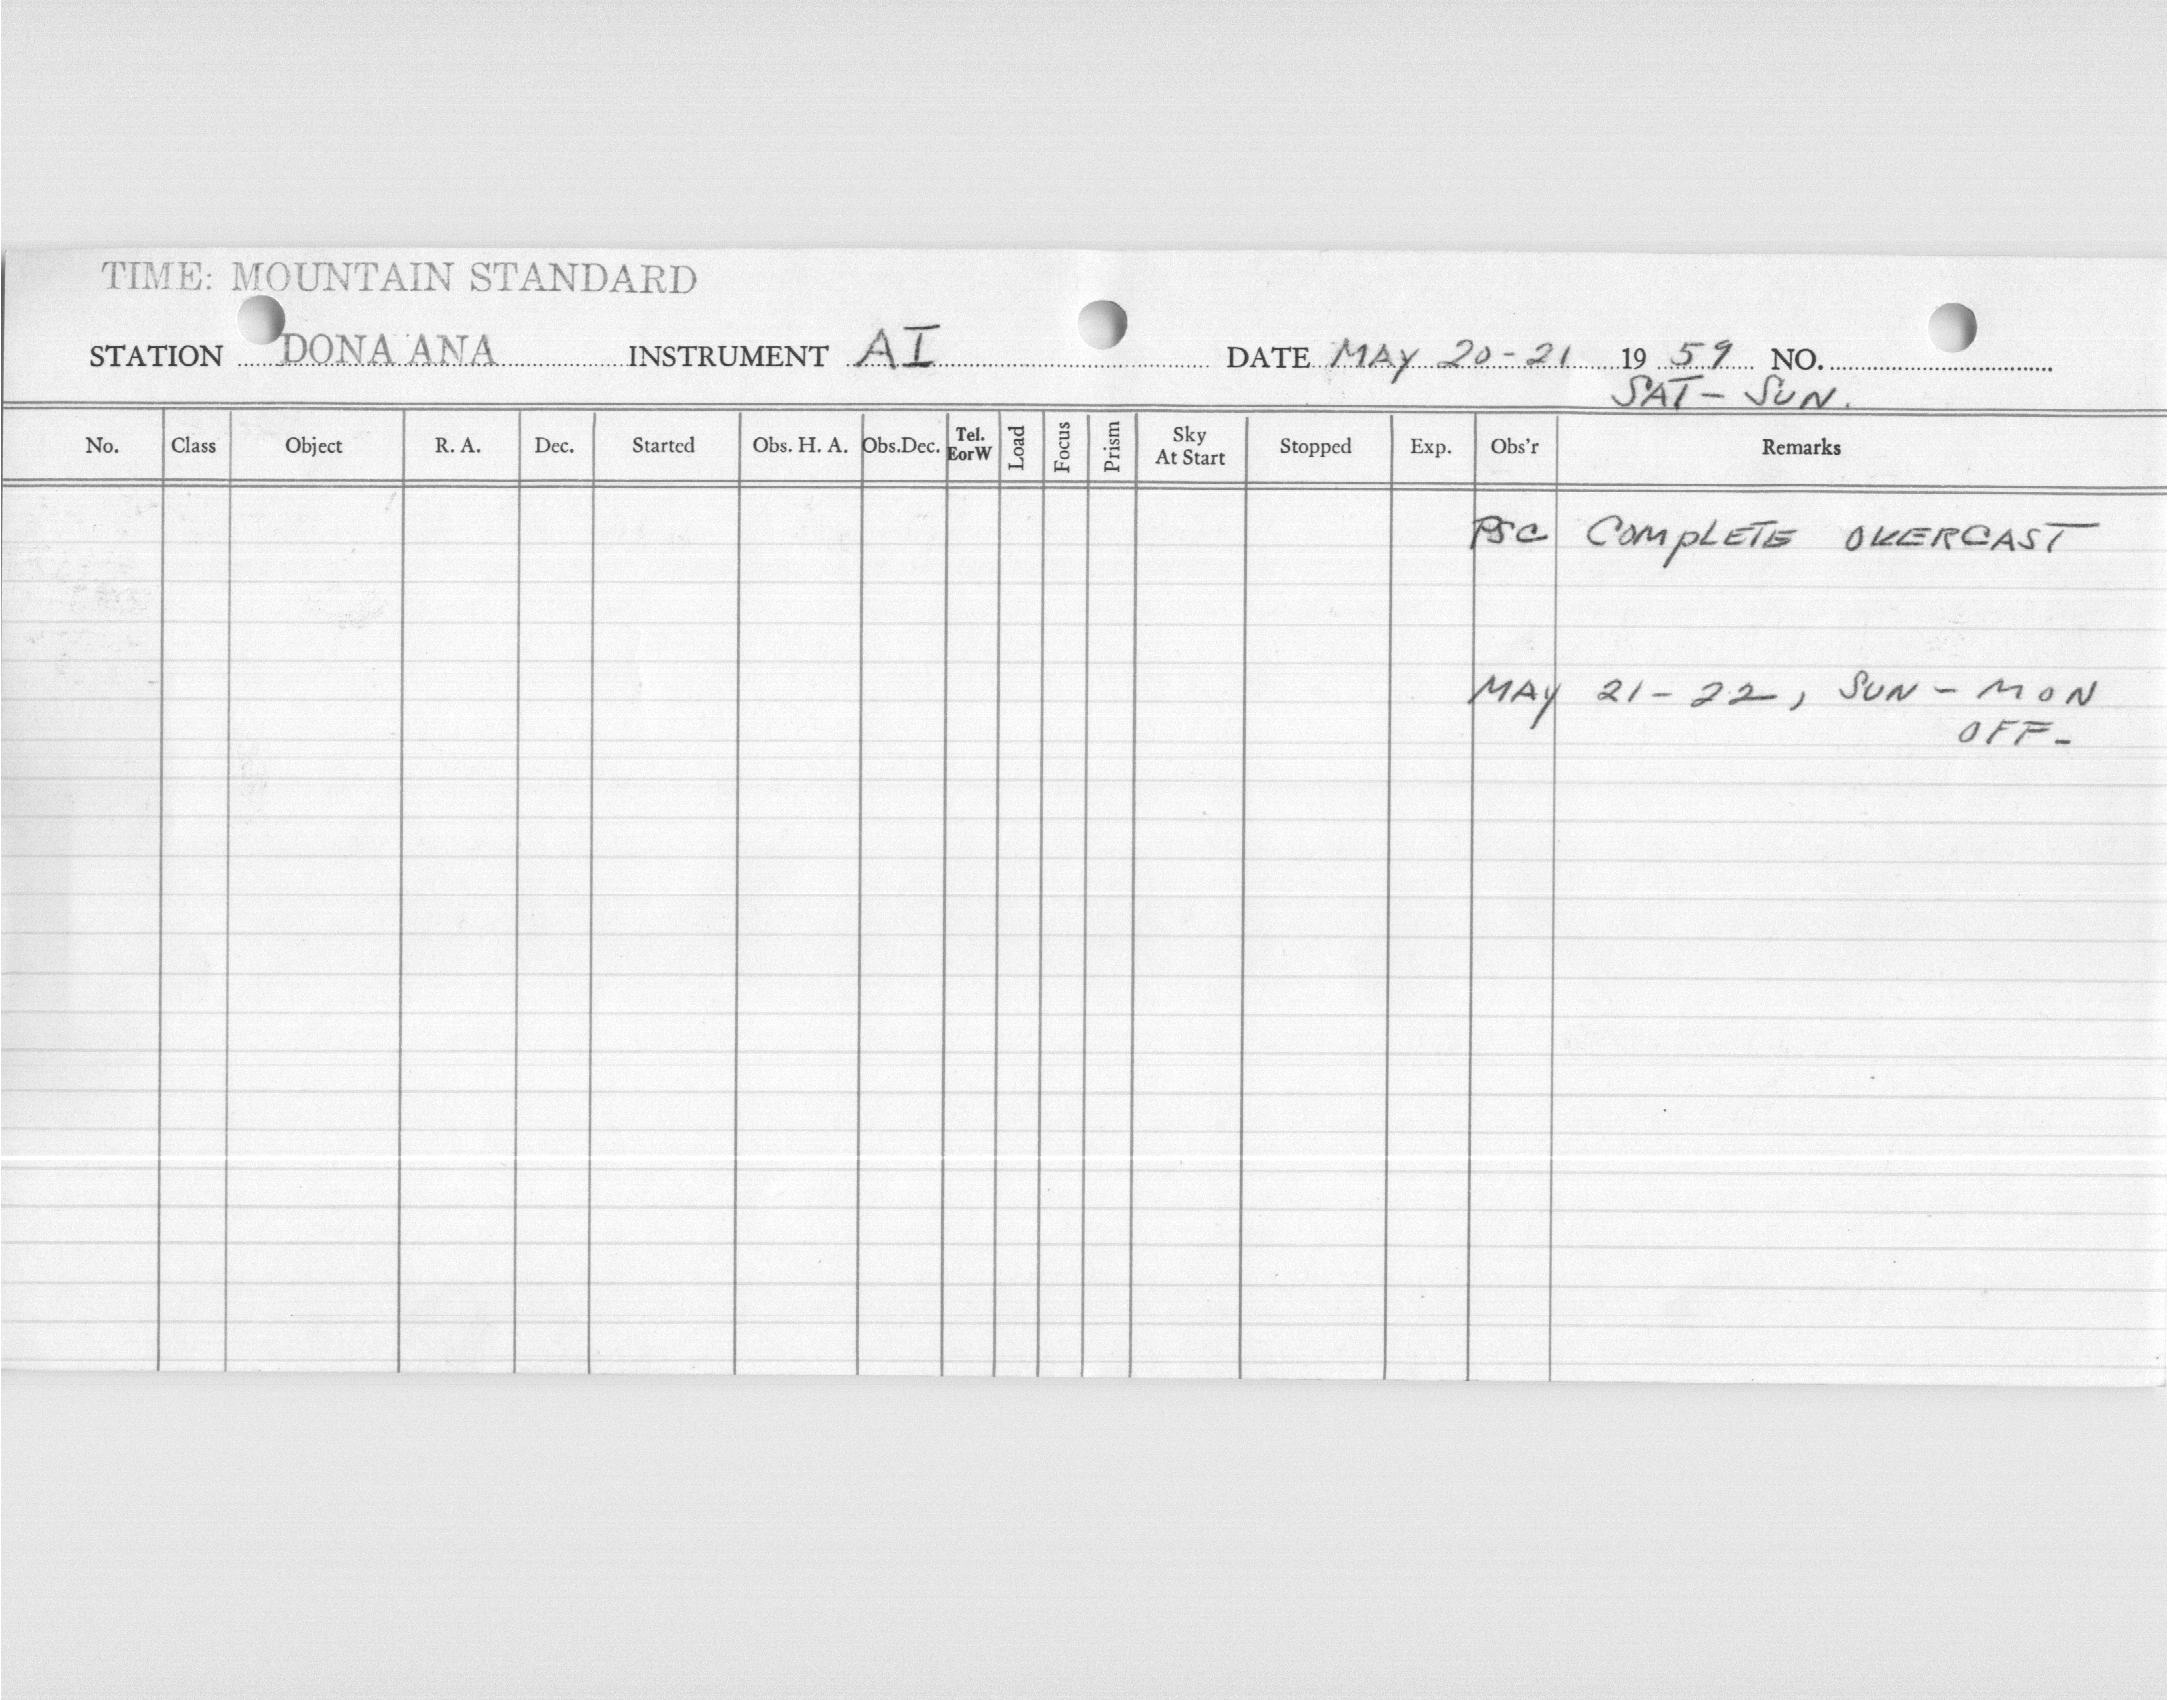 TIME: MOUNTAIN STANDARD
STATION DONA ANA INSTRUMENT AI DATE MAY 20-21 19 59 NO.
SAT - SUN.
No. Class Object R. A. Dec. Started Obs. H. A. Obs.Dec. Tel. EorW Load Focus Prism Sky At Start Stopped Exp. Obs'r Remarks
PSC COMPLETE OVERCAST
MAY 21-22, SUN - MON
OFF-